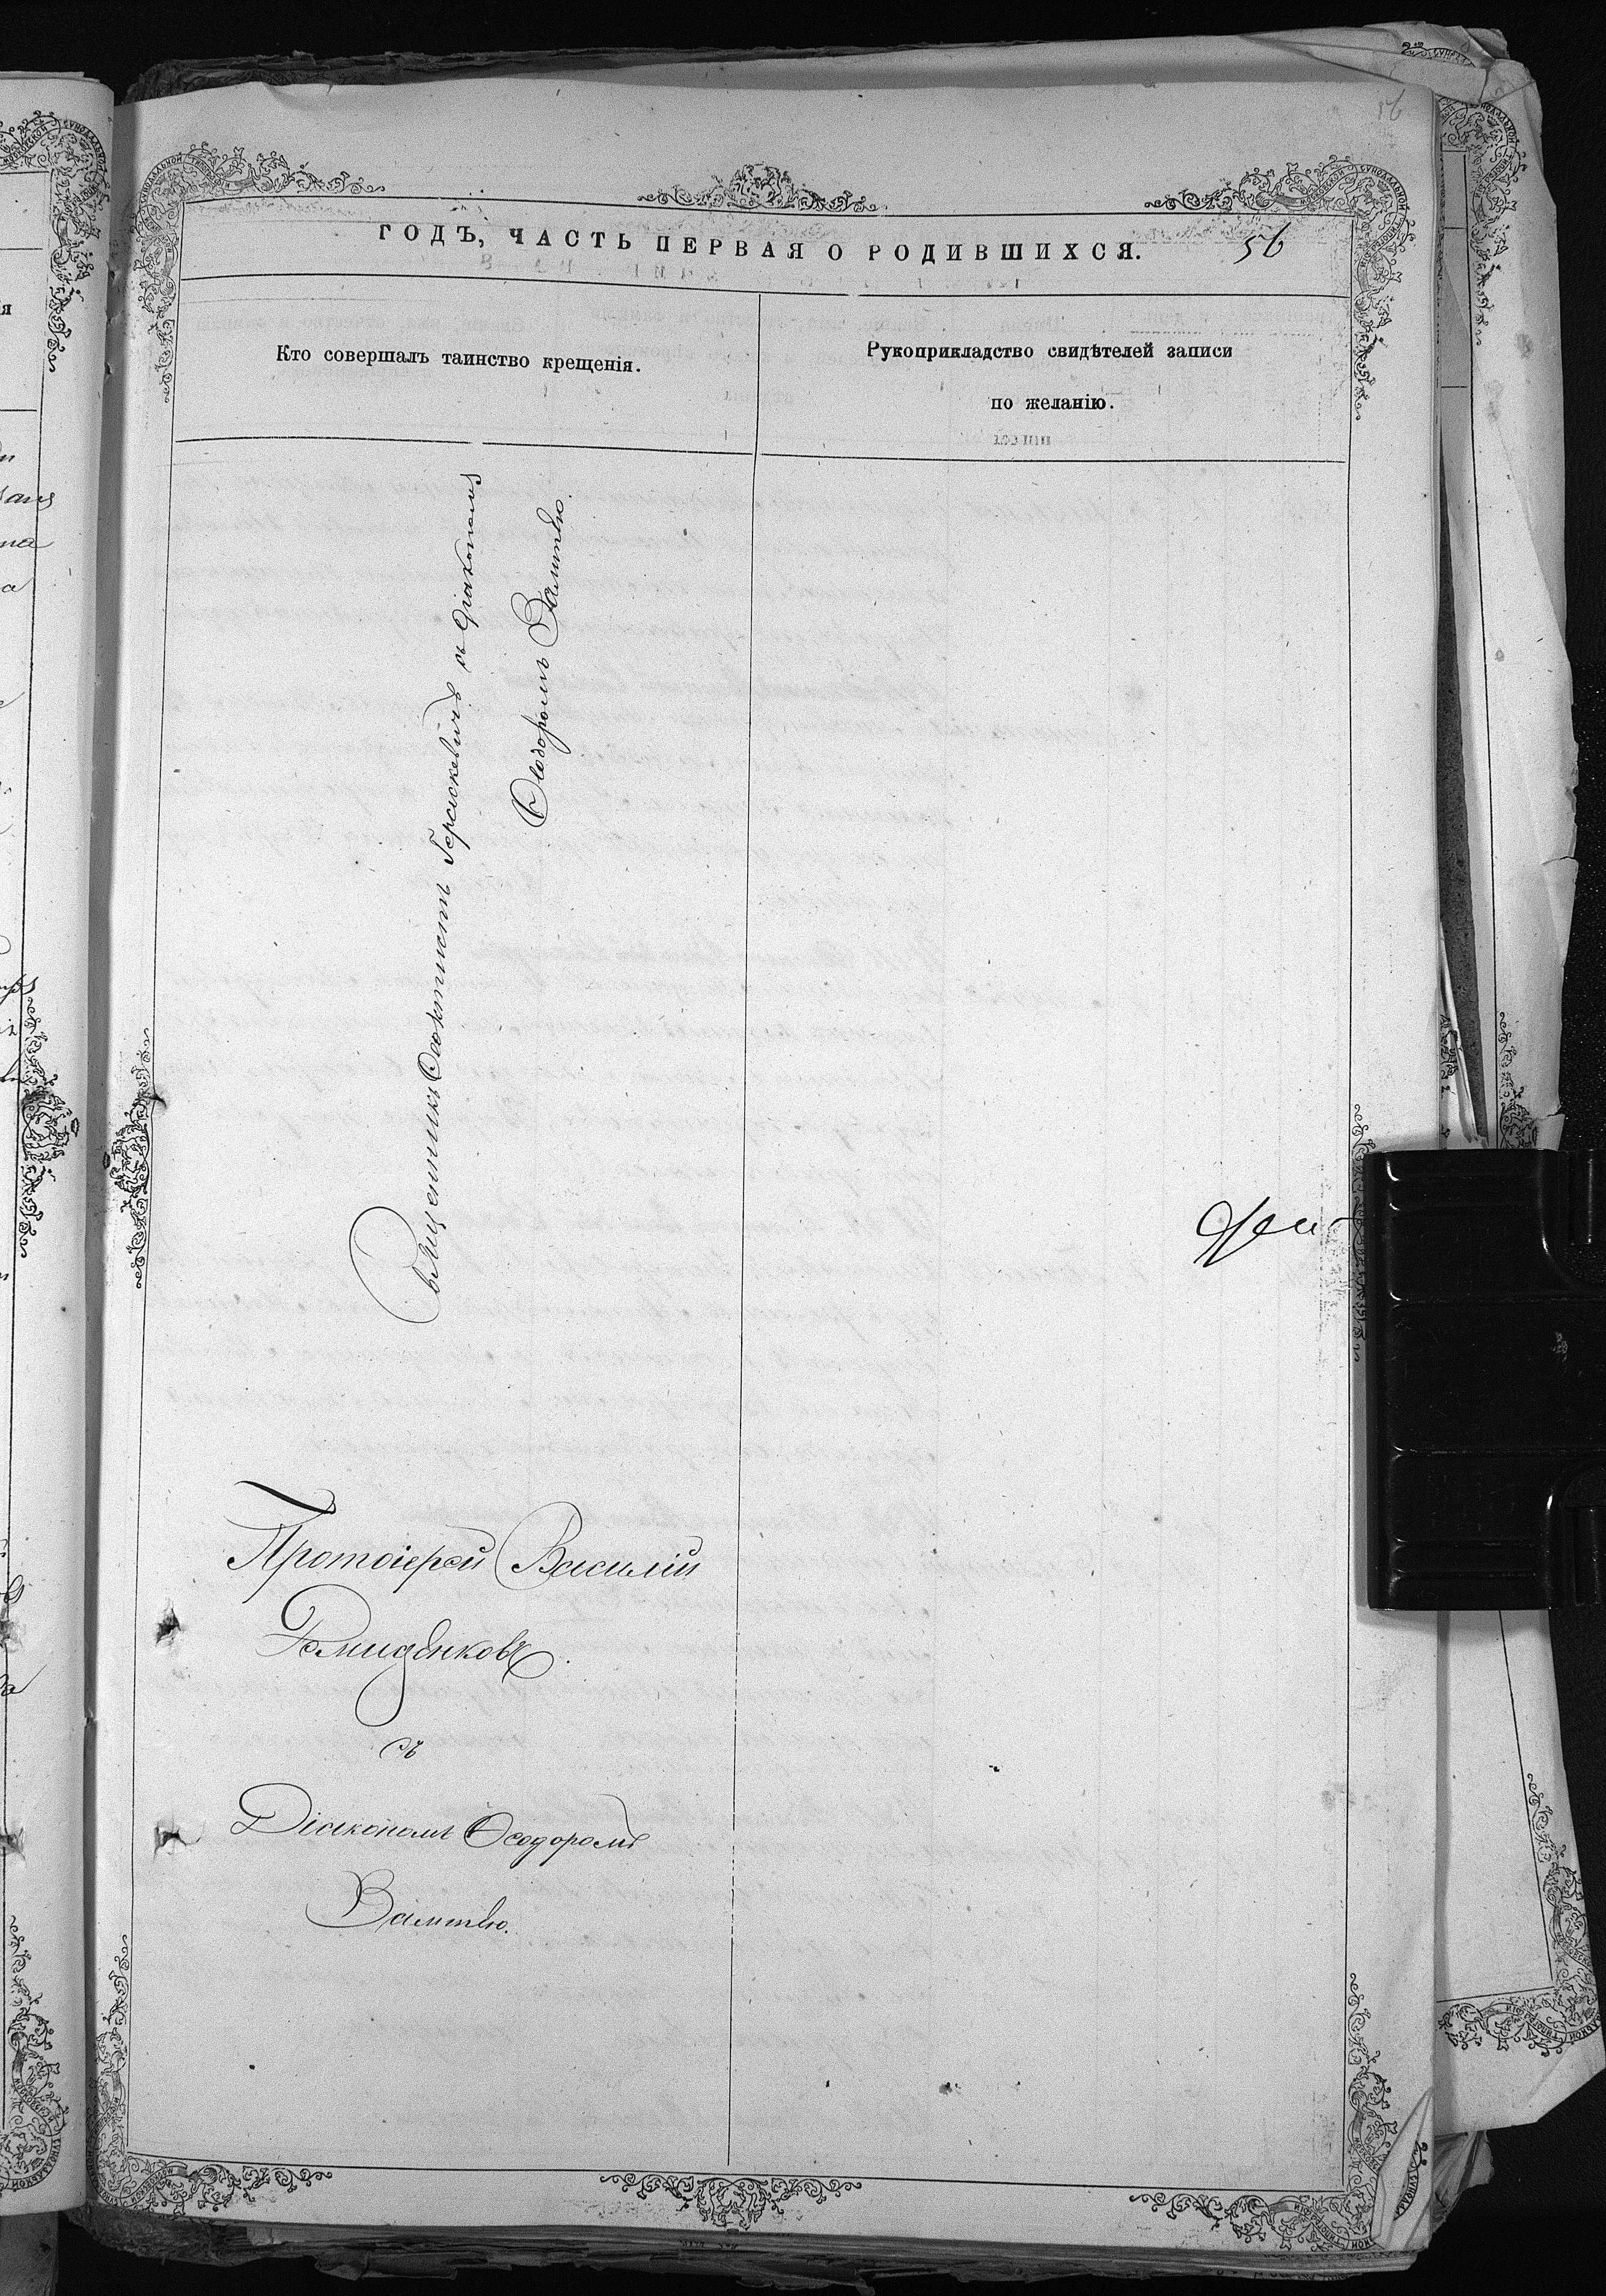 56
ГОДЪ, ЧАСТЬ ПЕРВАЯ О РОДИВШИХСЯ. 56
Кто совершалъ таинство крещенія.
Рукоприкладство свидѣтелей записи
по желанію.
Священникъ Ѳеоктистъ Гераскевичъ съ діакономъ
Ѳеодоромъ Валитвю.
Протоіерей Василій
Демиденковъ.
съ
Діакономъ Ѳеодоромъ
Валитвю.